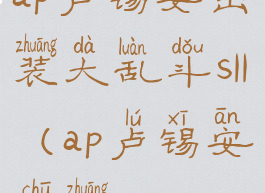 ap卢锡安出
zhuāng dà luàn dǒu
装大乱斗sll
lú xī ān
(ap卢锡安
chū zhuāng